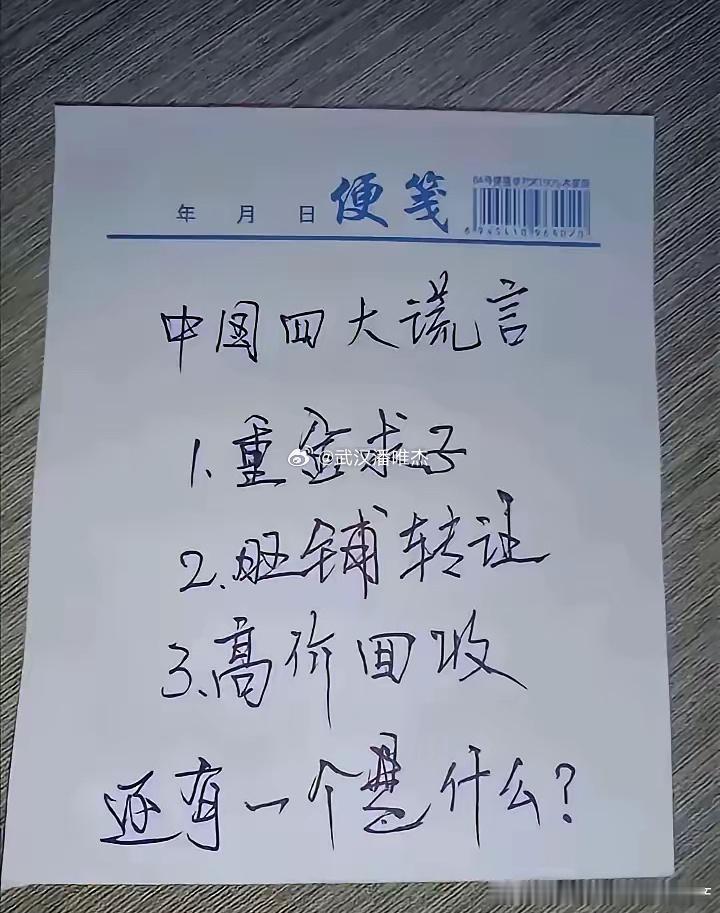 年 月 日 便笺
6945410969020
中国四大谎言
1.重金求子
@武汉潘唯杰
2.旺铺转让
3.高价回收
还有一个是什么?